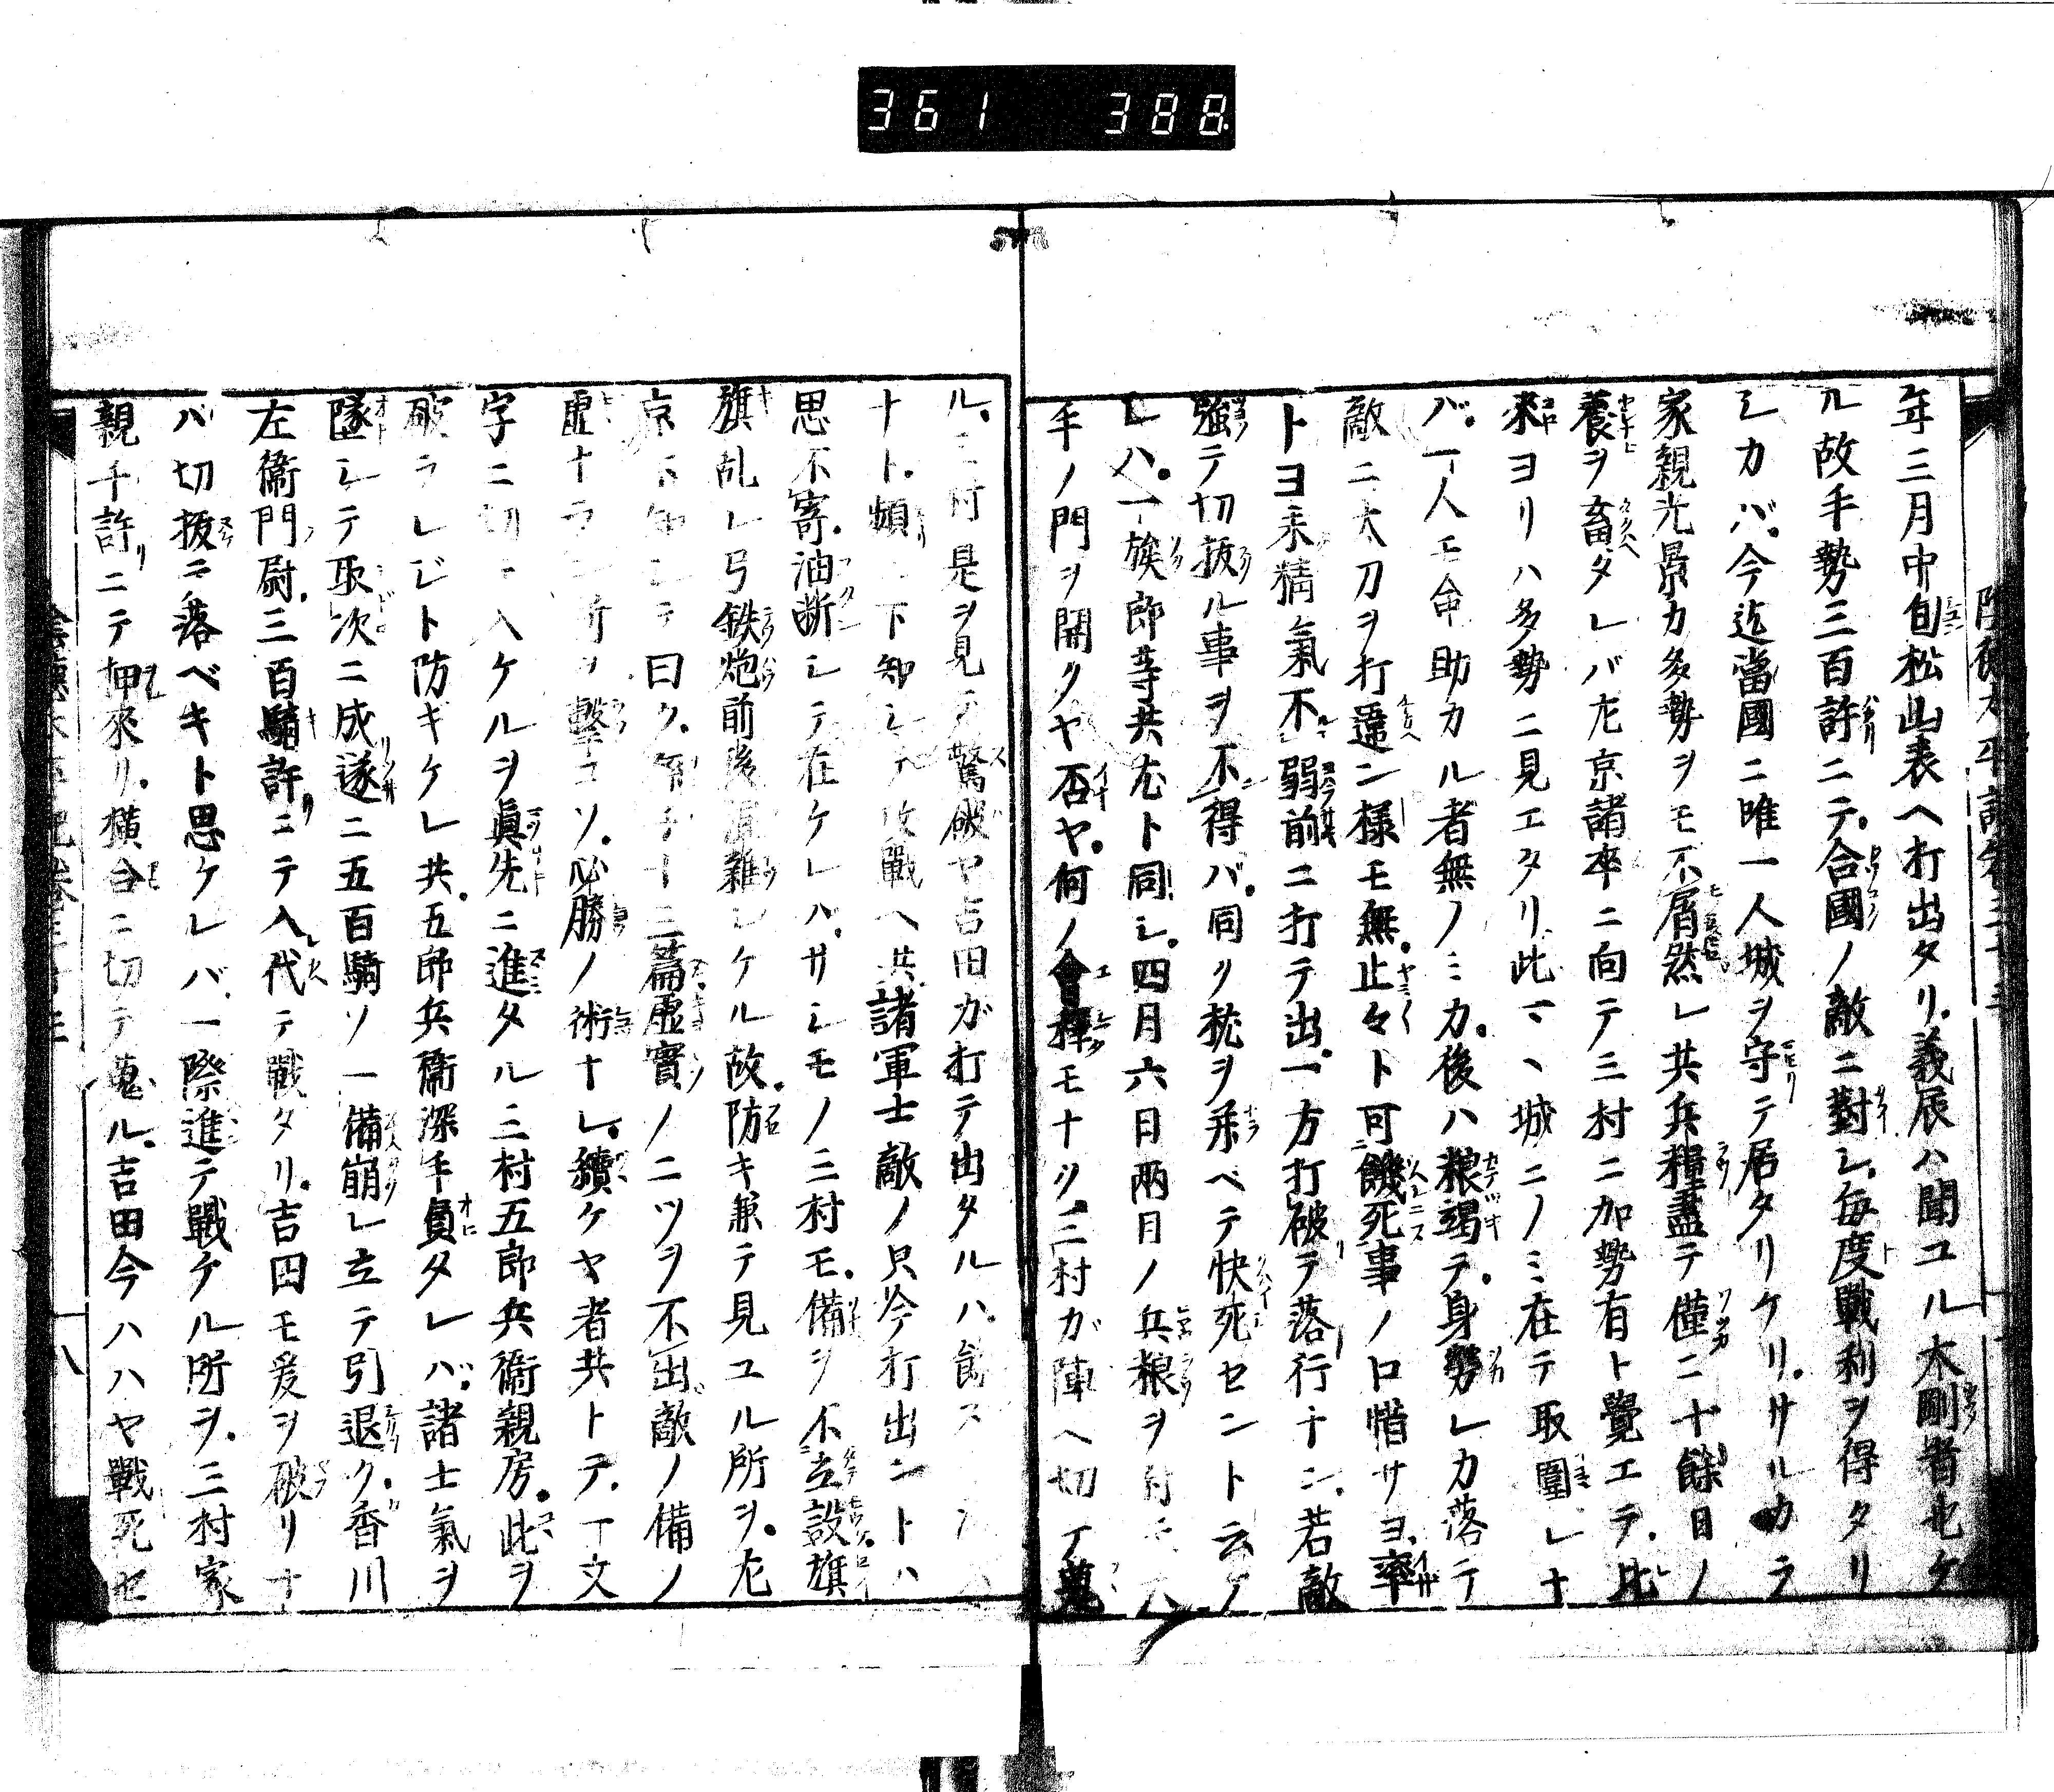 361 388
年三月中旬松山表ヘ打出タリ義辰ハ聞ユル大剛者也ケ
ル故手勢三百許ニテ合國ノ敵ニ對シ毎度戰利ヲ得タリ
シカバ今迄當國ニ唯一人城ヲ守テ居タリケリサルカラ
家親光景カ多勢ヲモ不屑然レ共兵糧盡テ僅ニ十餘日ノ
養ヲ畜タレバ左京諸卒ニ向テ三村ニ加勢有ト覺エテ此
來ヨリハ多勢ニ見エタリ此マヽ城ニノミ在テ取圍レナ
バ一人モ命助カル者無ノミカ後ハ粮竭テ身勞レカ落テ
敵ニ太刀ヲ打違ン樣モ無止々ト可餓死事ノ口惜サヨ率
トヨ未精氣不弱前ニ打テ出一方打破テ落行ナン若敵
強テ切拔ル事ヲ不得バ同リ枕ヲ並ベテ快死セント云ケ
レハ一族郎等共尤ト同シ四月六日兩日ノ兵粮ヲ付
手ノ門ヲ開クヤ否ヤ何ノ會釋モナク三村ガ陣ヘ切テ蒐
ル三村是ヲ見テ驚破ヤ吉田ガ打テ出タルハ
ナト頻ニ下知シテ攻戰ヘ共諸軍士敵ノ只今打出ントハ
思不寄油断シテ在ケレハサシモノ三村モ備ヲ不立設旗
旗乱レ弓鉄炮前後混雜シケル故防キ兼テ見ユル所ヲ左
京下知シテ曰ク
虚實ノ二ツヲ不出敵ノ備ノ
虚ナラン所ヲ撃コソ必勝ノ術ナレ續ケヤ者共トテ一文
字ニ切テ入ケルヲ眞先ニ進タル三村五郎兵衞親房此ヲ
破ラレジト防ギケレ共五郎兵衞深手負タレバ諸士氣ヲ
墜シテ取次ニ成遂ニ五百騎ソ一備崩レ立テ引退ク香川
左衞門尉三百騎許ニテ入代テ戰タリ吉田モ爰ヲ破リナ
バ切拔テ落ベキト思ケレバ一際進テ戰ケル所ヲ三村家
親千許ニテ押來リ横合ニ切テ蒐ル吉田今ハハヤ戰死セ
八